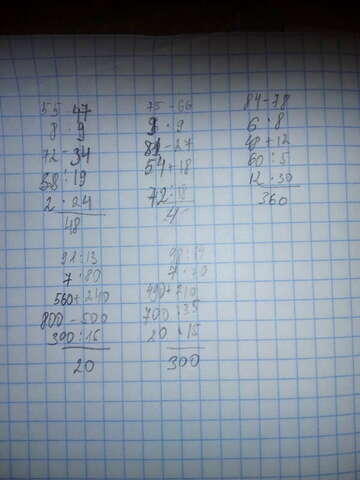 55 - 47
8 · 9
72 - 34
38 : 19
2 · 24
48
75 - 66
9 · 9
81 - 27
54 + 18
72 : 18
4
84 - 78
6 · 8
48 + 12
60 : 5
12 · 30
360
91 : 13
7 · 80
560 + 240
800 - 500
300 : 15
20
98 : 14
7 · 70
490 + 210
700 : 35
20 · 15
300